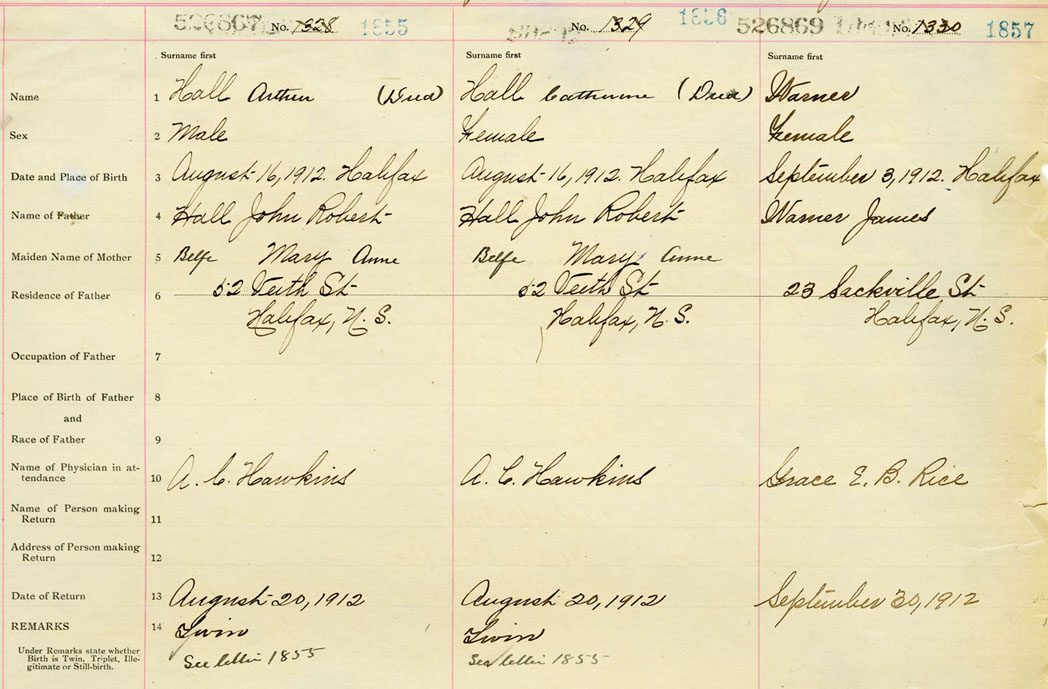 526867 No. 1328 1855
No. 1329 1856
526869 No. 1330 1857
Surname first Surname first Surname first
Name 1 Hall Arthur (Dead) Hall Catherine (Dead) Warner
Sex 2 Male Female Female
Date and Place of Birth 3 August 16, 1912. Halifax August 16, 1912. Halifax September 3, 1912. Halifax
Name of Father 4 Hall John Robert Hall John Robert Warner James
Maiden Name of Mother 5 Mary Anne Mary Anne
Residence of Father 6 52 Veith St 52 Veith St 23 Sackville St
Halifax, N.S. Halifax, N.S. Halifax, N.S.
Occupation of Father 7
Place of Birth of Father 8
and
Race of Father 9
Name of Physician in at-
tendance 10 A. C. Hawkins A. C. Hawkins Grace E. B. Rice
Name of Person making
Return 11
Address of Person making
Return 12
Date of Return 13 August 20, 1912 August 20, 1912 September 30, 1912
REMARKS 14 Twin Twin
Under Remarks state whether
Birth is Twin, Triplet, Ille-
gitimate or Still-birth.
See letter 1855 See letter 1855